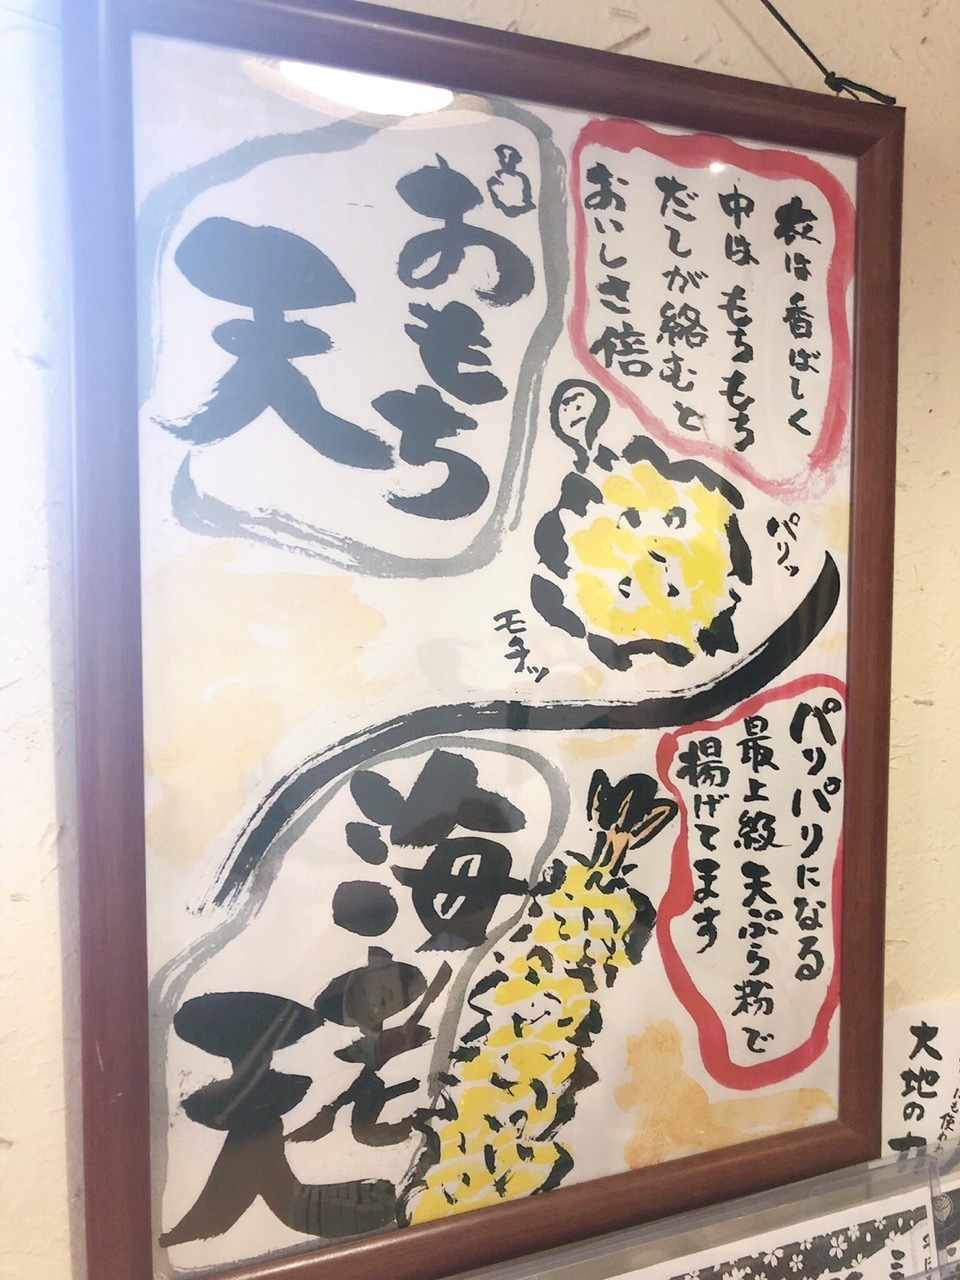 おもち
天
衣は香ばしく
中はもちもち
だしが絡むと
おいしさ倍
パリッ
モチッ
海老
天
パリパリになる
最上級天ぷら粉で
揚げてます
大地の